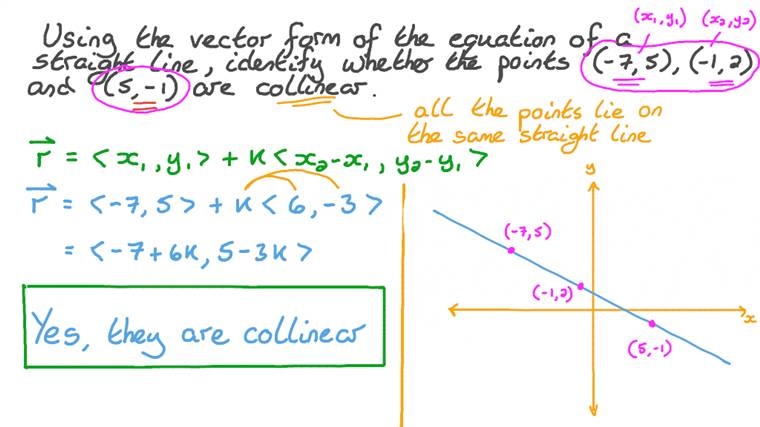 (x₁, y₁) (x₂, y₂)
Using the vector form of the equation of a
straight line, identify whether the points (-7, 5), (-1, 2)
and (5, -1) are collinear.
all the points lie on
the same straight line
r⃗ = <x₁, y₁> + K<x₂-x₁, y₂-y₁>
r⃗ = <-7, 5> + K<6, -3>
= <-7+6K, 5-3K>
Yes, they are collinear
y
(-7, 5)
(-1, 2)
x
(5, -1)